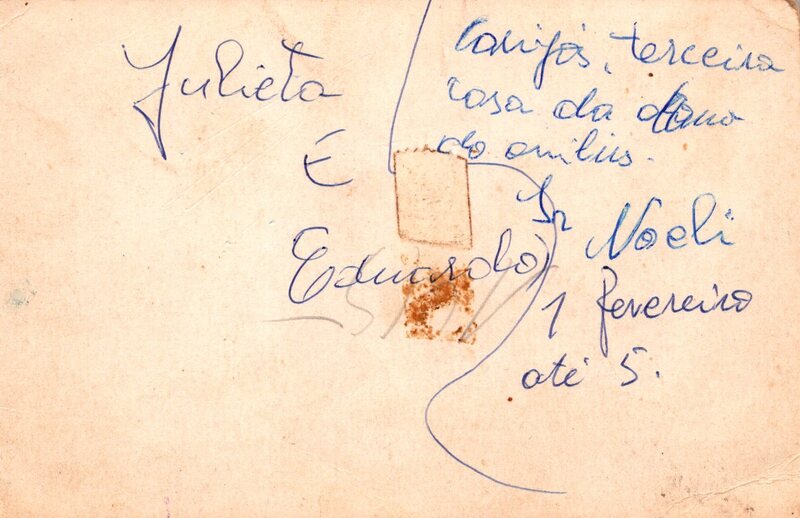 Julieta
E
Eduardo
terceira
casa da dona
do onibus.
Sr Noeli
1 fevereiro
até 5.